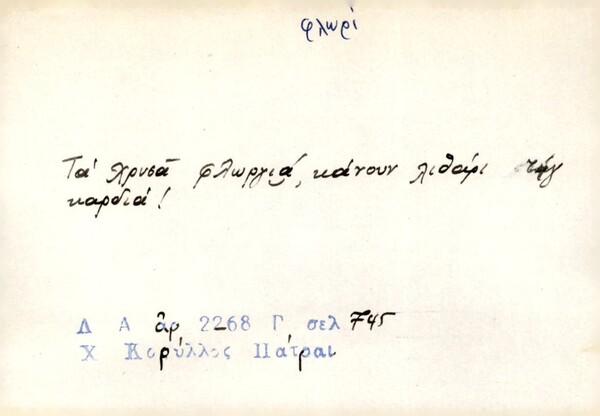 φλωρί
Τά χρυσᾶ φλωργιά, κάνουν λιθάρι τήγ
καρδιά!
Λ Α ἀρ 2268 Γ σελ 745
Χ Κορύλλος Πάτραι